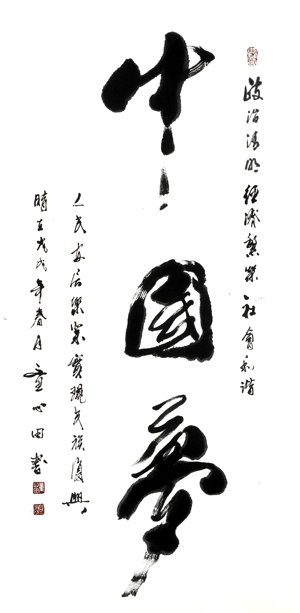 政治清明經濟繁榮社會和諧
中國夢
人民安居樂業實現民族復興
時在戊戌年春月心田書